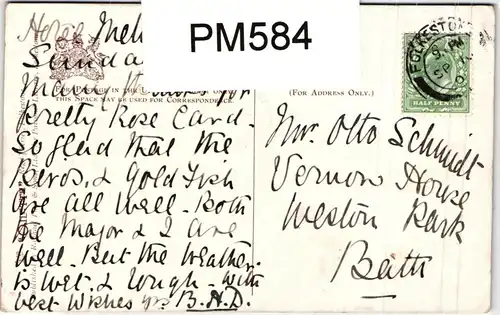 PM584
Hotel
Sunda
Many thanks for
FOR POSTAGE IN THE
THIS SPACE MAY BE USED FOR CORRESPONDENCE.
Pretty Rose Card -
So glad that the
Birds, & Gold Fish
are all well. Both
the Major & I are
well. But the weather
is wet. & rough - with
best wishes yrs B.H.D.
(FOR ADDRESS ONLY.)
FOLKESTONE
HALF PENNY
Mr. Otto Schmidt
Vernon House
Weston Park
Bath